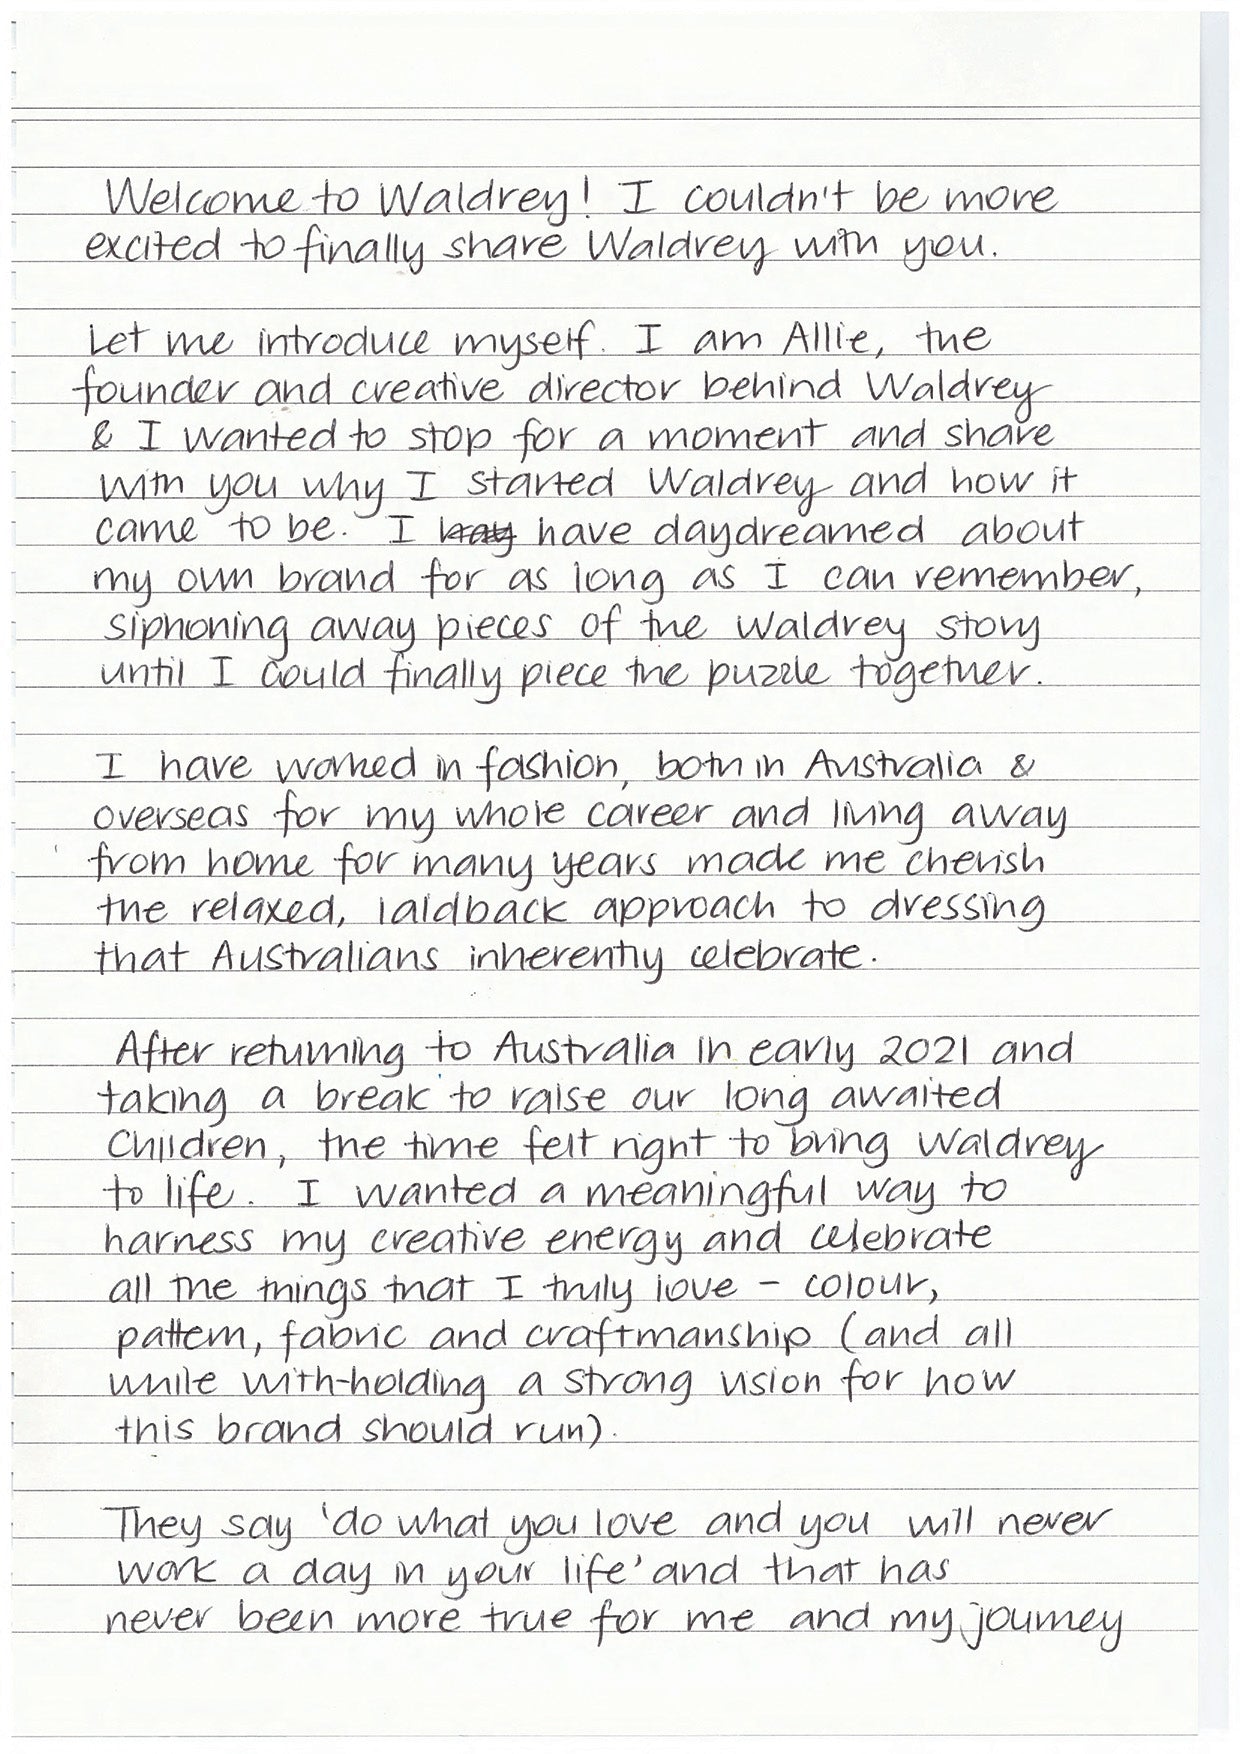 Welcome to Waldrey! I couldn't be more
excited to finally share Waldrey with you.
Let me introduce myself. I am Allie, the
founder and creative director behind Waldrey
& I wanted to stop for a moment and share
with you why I started Waldrey and how it
came to be. I have daydreamed about
my own brand for as long as I can remember,
siphoning away pieces of the Waldrey story
until I could finally piece the puzzle together.
I have worked in fashion, both in Australia &
overseas for my whole career and living away
from home for many years made me cherish
the relaxed, laidback approach to dressing
that Australians inherently celebrate.
After returning to Australia in early 2021 and
taking a break to raise our long awaited
Children, the time felt right to bring Waldrey
to life. I wanted a meaningful way to
harness my creative energy and celebrate
all the things that I truly love – colour,
pattern, fabric and craftmanship (and all
while with-holding a strong vision for how
this brand should run).
They say 'do what you love and you will never
work a day in your life' and that has
never been more true for me and my journey